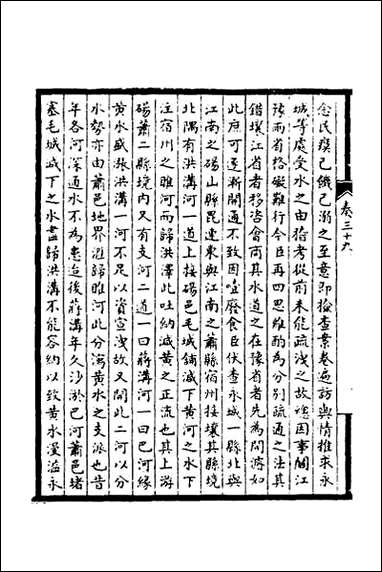 念民瘼己饑己溺之至意即檢查案卷遍訪輿情推求永
城等處受水之由指考從前未能疏浚之故總因事關江
豫兩省格礙難行今臣再四思維酌為分别疏通之法其
錯壤江省者移咨會商其水道之在豫省者先為開濬如
此庶可逐漸開通不致因噎廢食臣伏查永城一縣北與
江南之碭山縣毘連東與江南之蕭縣宿州接壤其縣境
北隅有洪溝河一道上接碭邑毛城鋪減下黃河之水下
注宿州之睢河而歸洪澤此吐納減黃之正流也其上游
碭蕭二縣境内又有支河二道一曰蔣溝河一曰巴河緣
黃水盛漲洪溝一河不足以資宣洩故又開此二河以分
水勢亦由蕭邑地界滙歸睢河此分瀉黃水之支派也昔
年各河深通水不為患迨後蔣溝年久沙淤巴河蕭邑堵
塞毛城減下之水盡歸洪溝不能容納以致黃水漫溢永
卷三十九